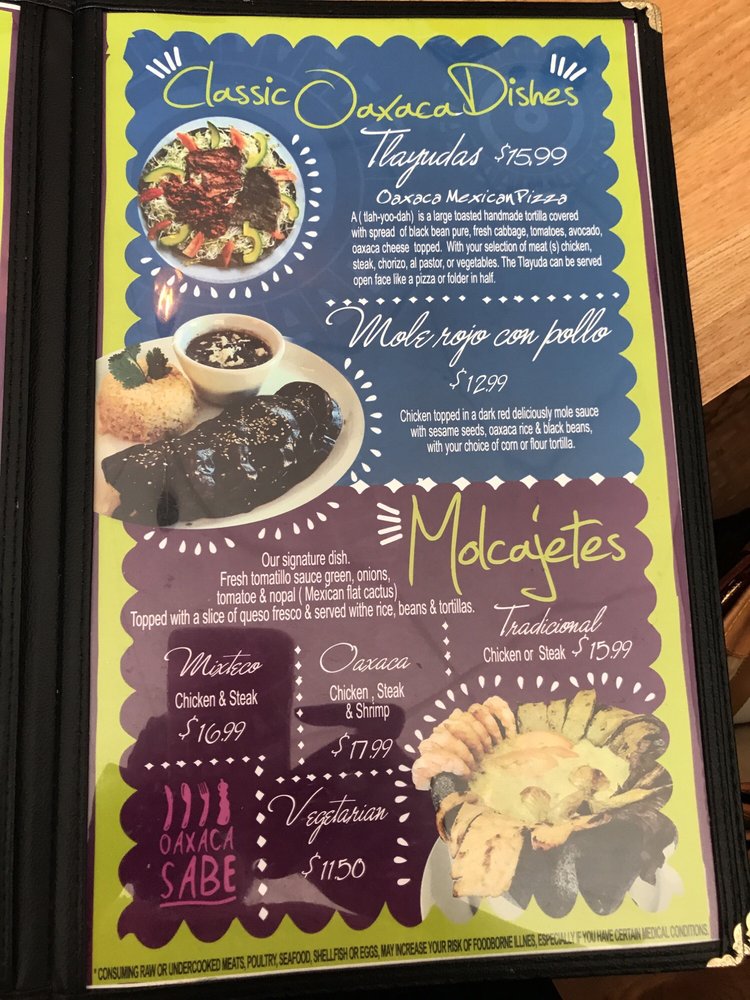 Classic Oaxaca Dishes
Tlayudas $15.99
Oaxaca Mexican Pizza
A ( tlah-yoo-dah) is a large toasted handmade tortilla covered
with spread of black bean pure, fresh cabbage, tomatoes, avocado,
oaxaca cheese topped. With your selection of meat (s) chicken,
steak, chorizo, al pastor, or vegetables. The Tlayuda can be served
open face like a pizza or folder in half.
Mole rojo con pollo
$12.99
Chicken topped in a dark red deliciously mole sauce
with sesame seeds, oaxaca rice & black beans,
with your choice of corn or flour tortilla.
Molcajetes
Our signature dish.
Fresh tomatillo sauce green, onions,
tomatoe & nopal ( Mexican flat cactus)
Topped with a slice of queso fresco & served withe rice, beans & tortillas.
Tradicional
Chicken or Steak $15.99
Mixteco
Chicken & Steak
$16.99
Oaxaca
Chicken , Steak
& Shrimp
$17.99
Vegetarian
$11.50
OAXACA
SABE
* CONSUMING RAW OR UNDERCOOKED MEATS, POULTRY, SEAFOOD, SHELLFISH OR EGGS, MAY INCREASE YOUR RISK OF FOODBORNE ILLNES, ESPECIALLY IF YOU HAVE CERTAIN MEDICAL CONDITIONS.